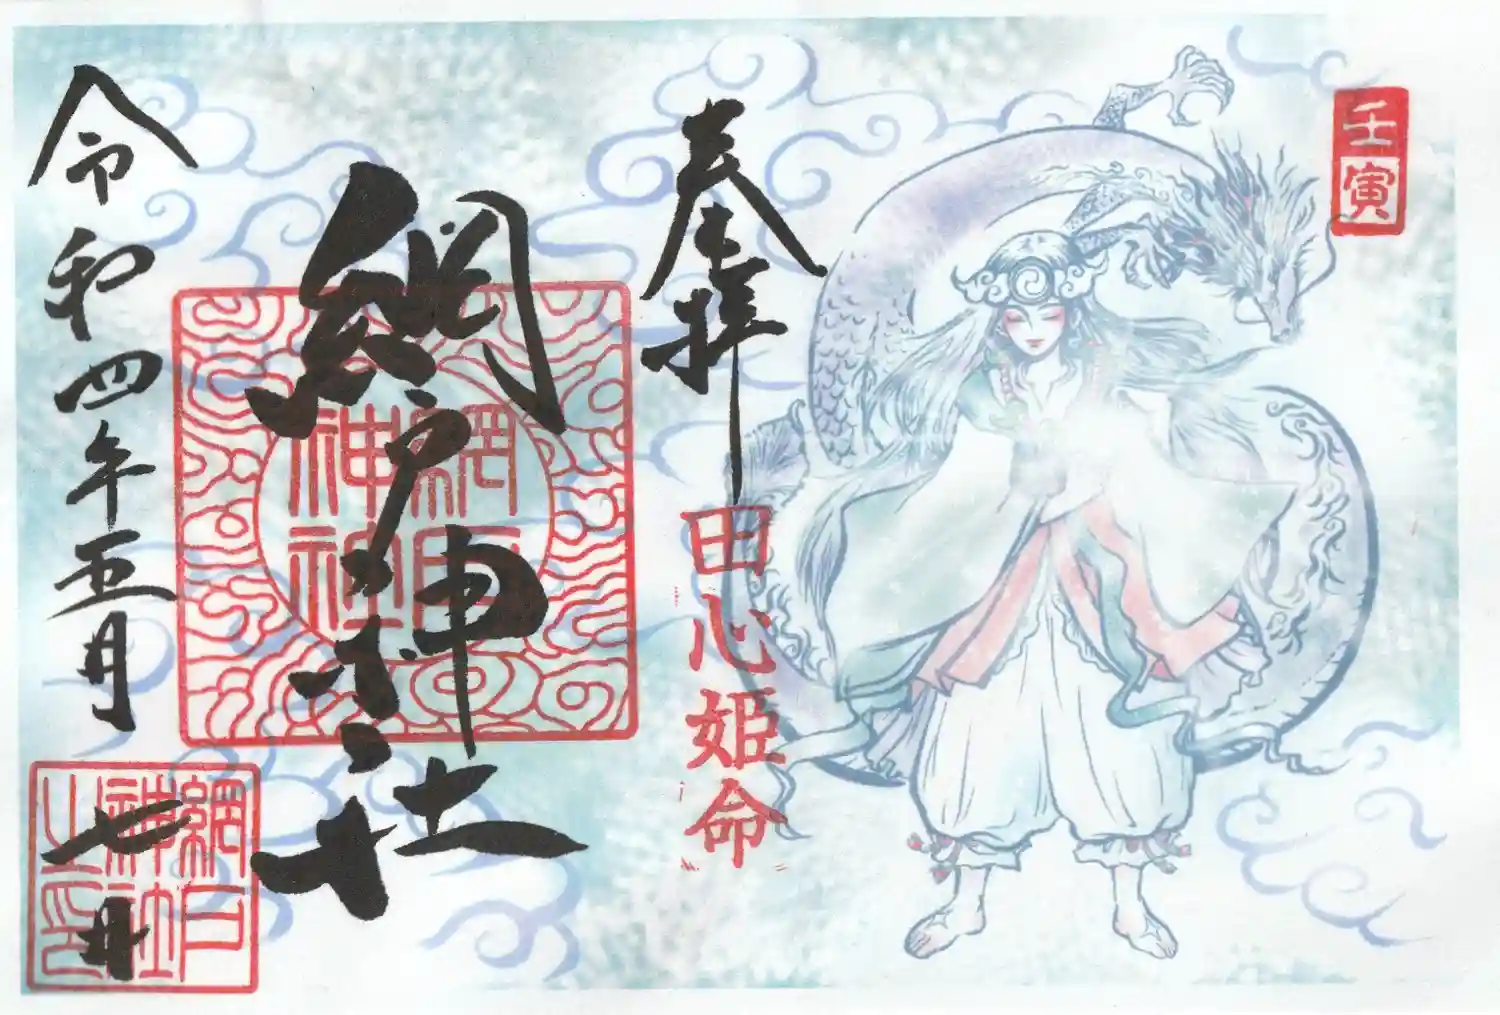 壬寅
奉拝
田心姫命
網戸神社
網戸
神社
令和四年五月
七日
網戸
神社
之印